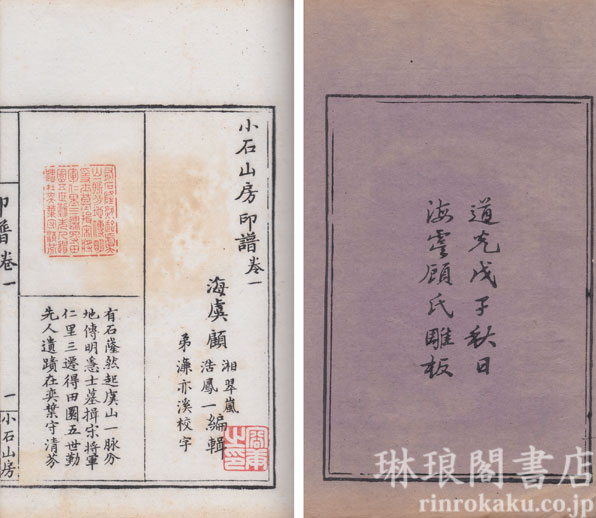 道光戊子秋日
海虞顧氏雕板
小石山房印譜卷一
海虞顧
湘翠嵐
浩鳳一
編輯
弟濂亦溪校字
有石隆然起虞山一脈分
地傳明士墓揖宋將軍
仁里三遷得田園五世勤
先人遺蹟在奕葉守清芬
印譜卷一
一
小石山房
琳琅閣書店
rinrokaku.co.jp